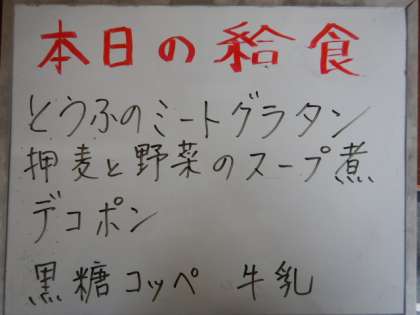 本日の給食
とうふのミートグラタン
押麦と野菜のスープ煮
デコポン
黒糖コッペ 牛乳